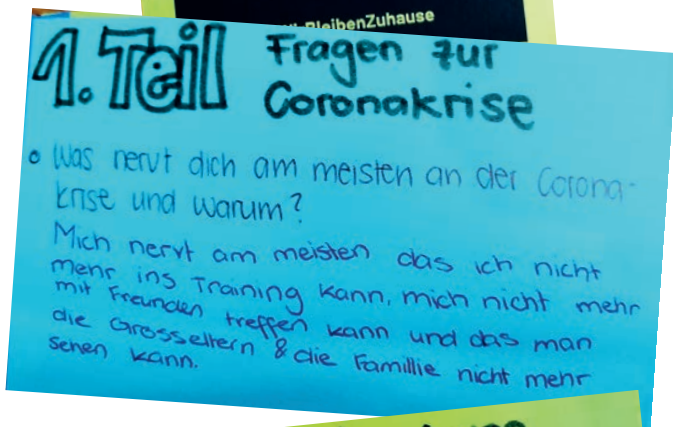 BleibenZuhause
1. Teil Fragen zur
Coronakrise
• Was nervt dich am meisten an der Corona-
krise und warum?
Mich nervt am meisten das ich nicht
mehr ins Training kann, mich nicht mehr
mit Freunden treffen kann und das man
die Grosseltern & die Famillie nicht mehr
sehen kann.